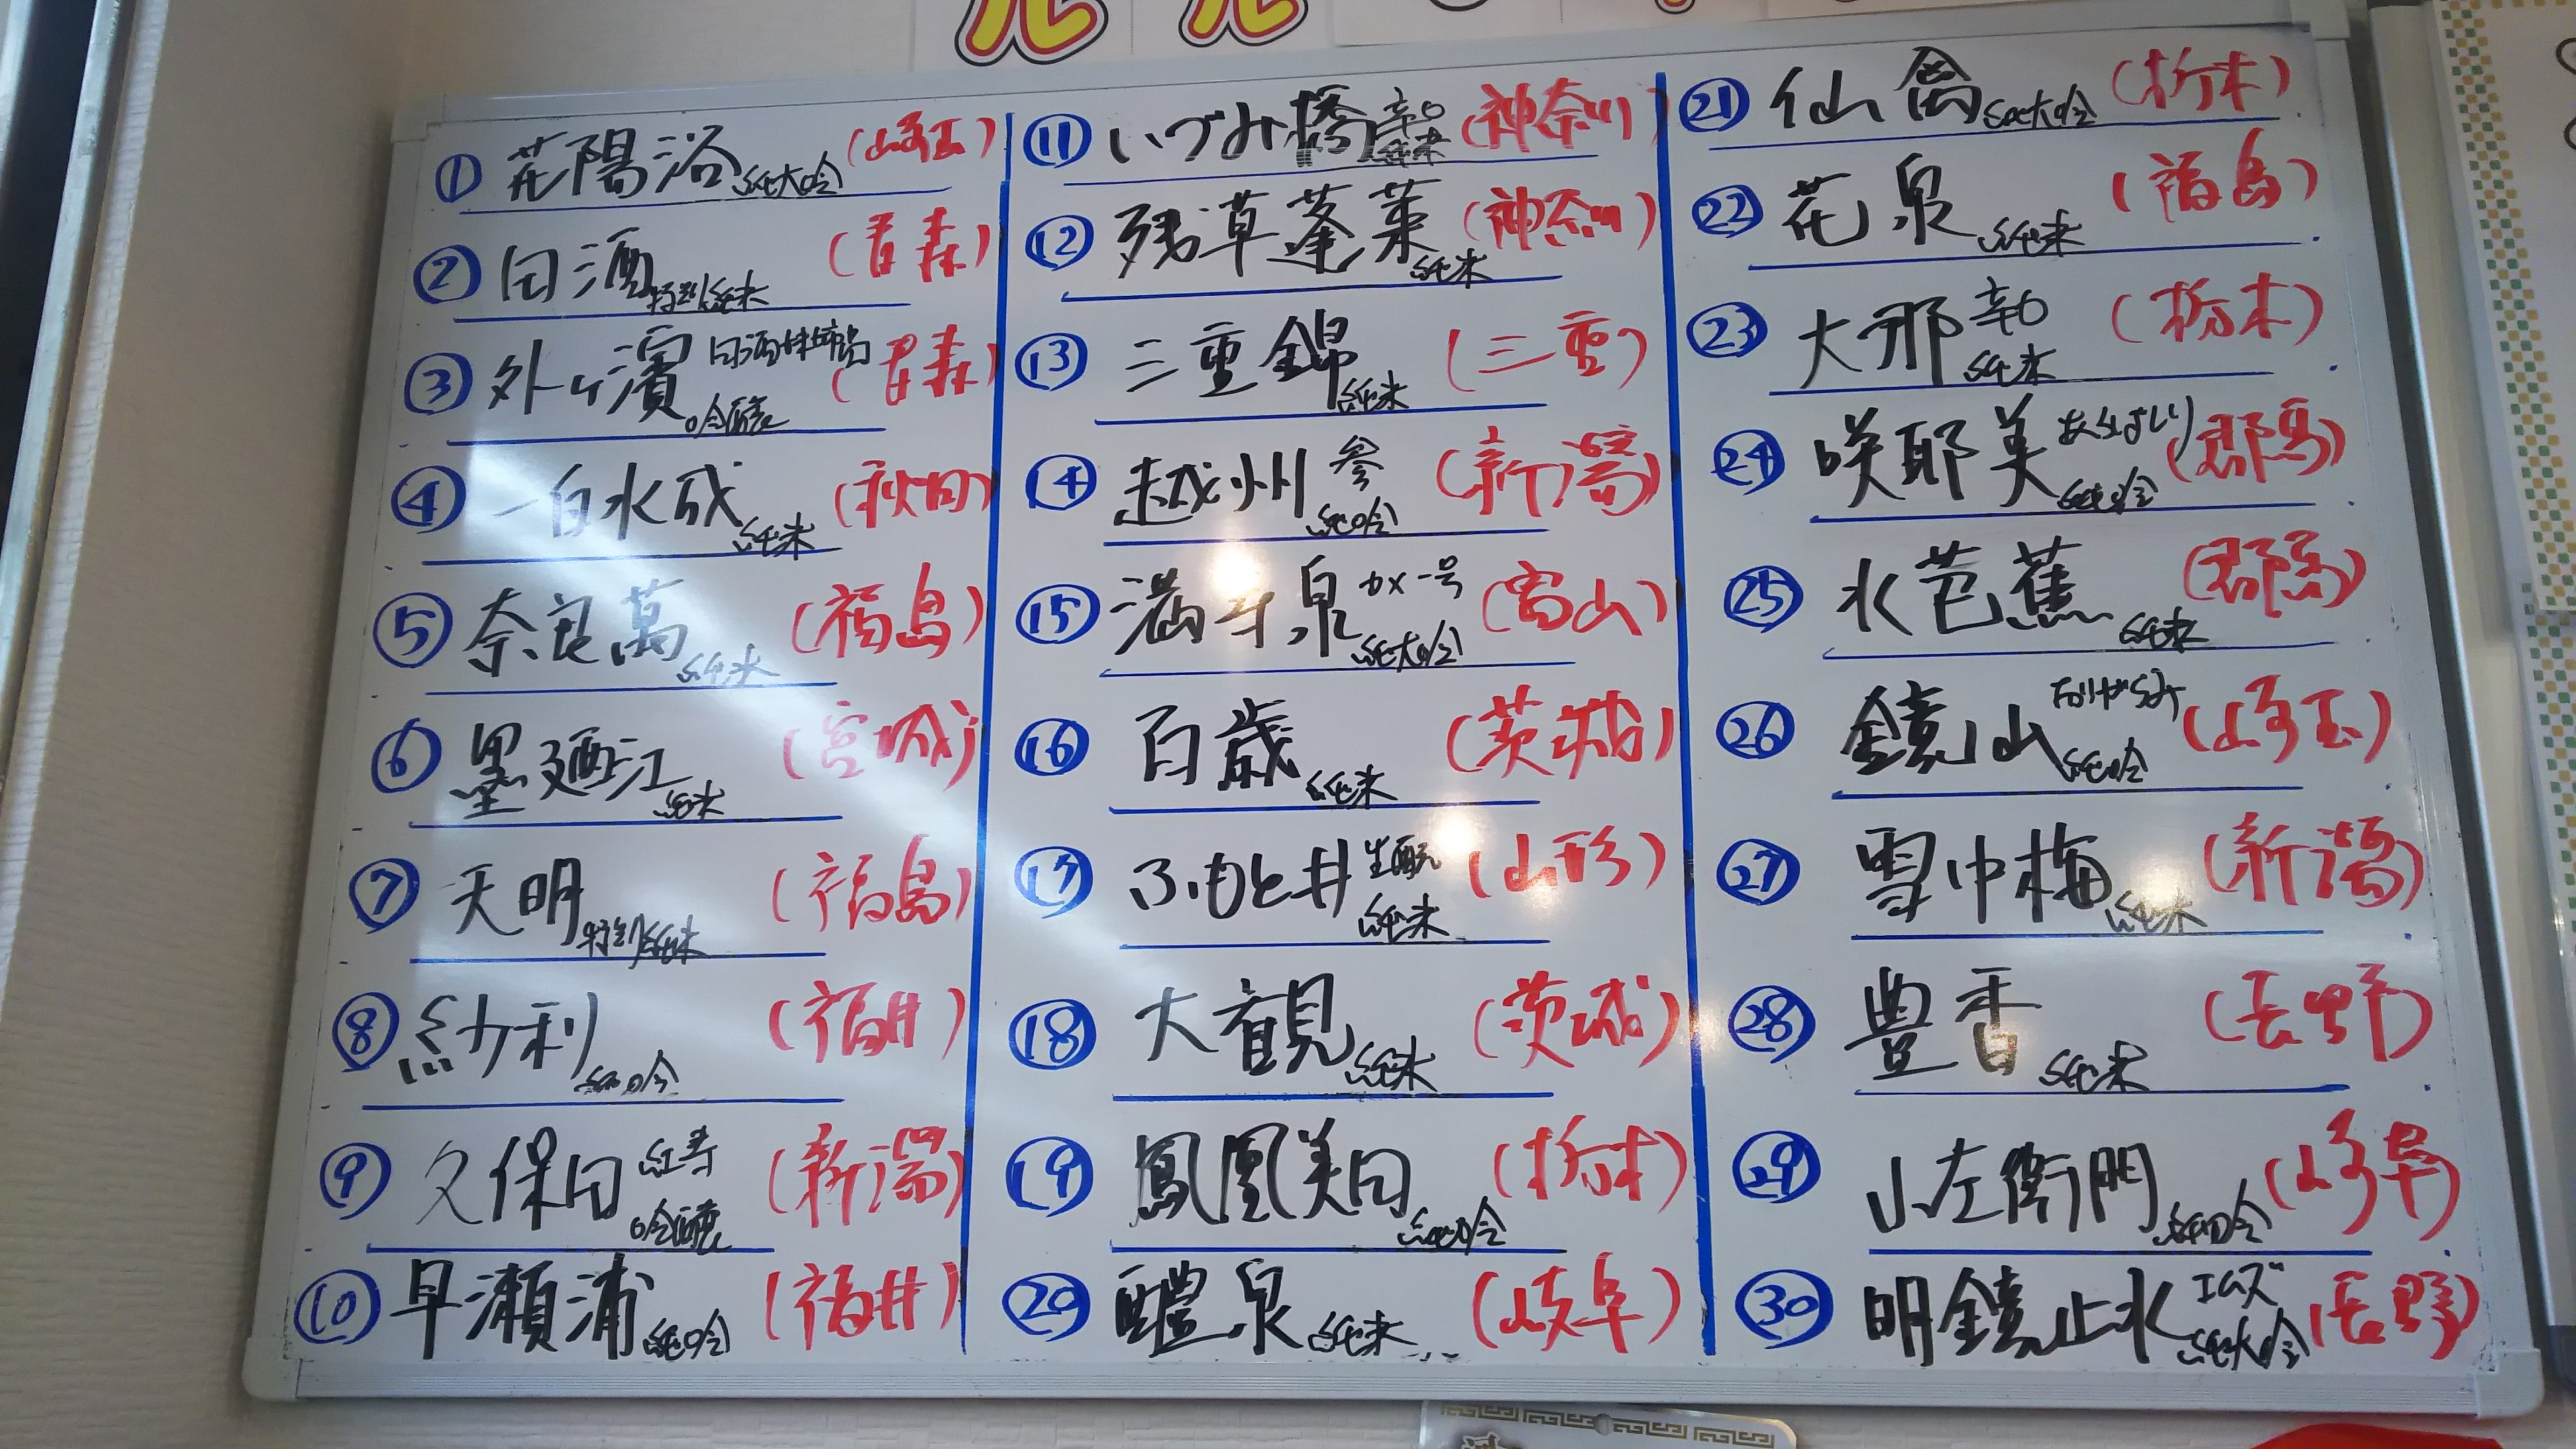 ① 花陽浴 純大吟 (埼玉)
② 田酒 特別純米 (青森)
③ 外ヶ濱 田酒姉妹品 吟醸 (青森)
④ 一白水成 純米 (秋田)
⑤ 奈良萬 純米 (福島)
⑥ 墨廼江 純米 (宮城)
⑦ 天明 特別純米 (福島)
⑧ 紗利 純吟 (福井)
⑨ 久保田 紅寿 吟醸 (新潟)
⑩ 早瀬浦 純吟 (福井)
⑪ いづみ橋 辛口 純米 (神奈川)
⑫ 残草蓬莱 純米 (神奈川)
⑬ 三重錦 純米 (三重)
⑭ 越州 参 純吟 (新潟)
⑮ 満寿泉 カメ一号 純大吟 (富山)
⑯ 百歳 純米 (茨城)
⑰ ふもと井 生酛 純米 (山形)
⑱ 大観 純米 (茨城)
⑲ 鳳凰美田 純吟 (栃木)
⑳ 醴泉 純米 (岐阜)
㉑ 仙禽 純大吟 (栃木)
㉒ 花泉 純米 (福島)
㉓ 大那 辛口 純米 (栃木)
㉔ 咲耶美 あらばしり 純吟 (郡馬)
㉕ 水芭蕉 純米 (郡馬)
㉖ 鏡山 純吟 (埼玉)
㉗ 雪中梅 純米 (新潟)
㉘ 豊香 純米 (長野)
㉙ 小左衛門 純吟 (岐阜)
㉚ 明鏡止水 エムズ 純大吟 (長野)